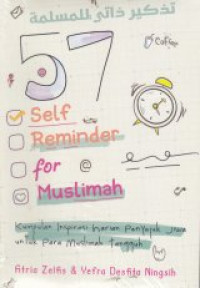 تذكير ذاتي للمسلمة
57
Coffee
Self
Reminder
for @
Muslimah
Kumpulan Inspirasi Harian Penyejuk Jiwa
untuk Para Muslimah Tangguh
Fitria Zelfis & Yefra Desfita Ningsih